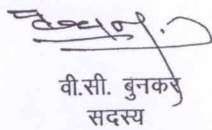 वी.सी. बुनकर
सदस्य